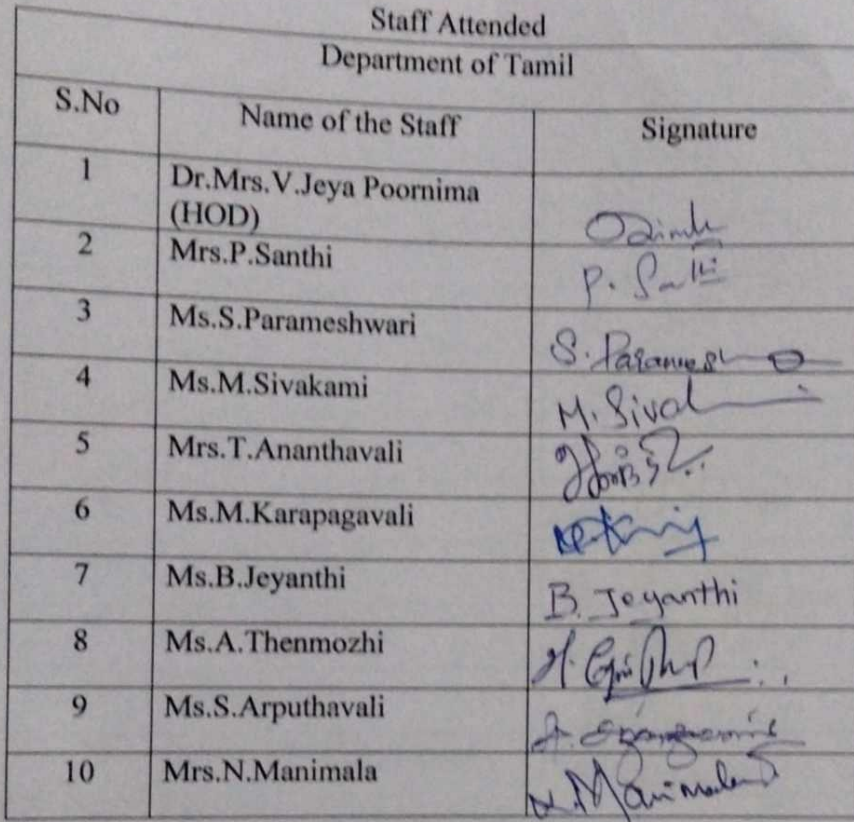 Staff Attended
Department of Tamil
S.No Name of the Staff Signature
1 Dr.Mrs.V.Jeya Poornima
(HOD)
2 Mrs.P.Santhi P. Santhi
3 Ms.S.Parameshwari S. Parames
4 Ms.M.Sivakami M. Siva
5 Mrs.T.Ananthavali
6 Ms.M.Karapagavali
7 Ms.B.Jeyanthi B. Jeyanthi
8 Ms.A.Thenmozhi
9 Ms.S.Arputhavali
10 Mrs.N.Manimala N. Manimala